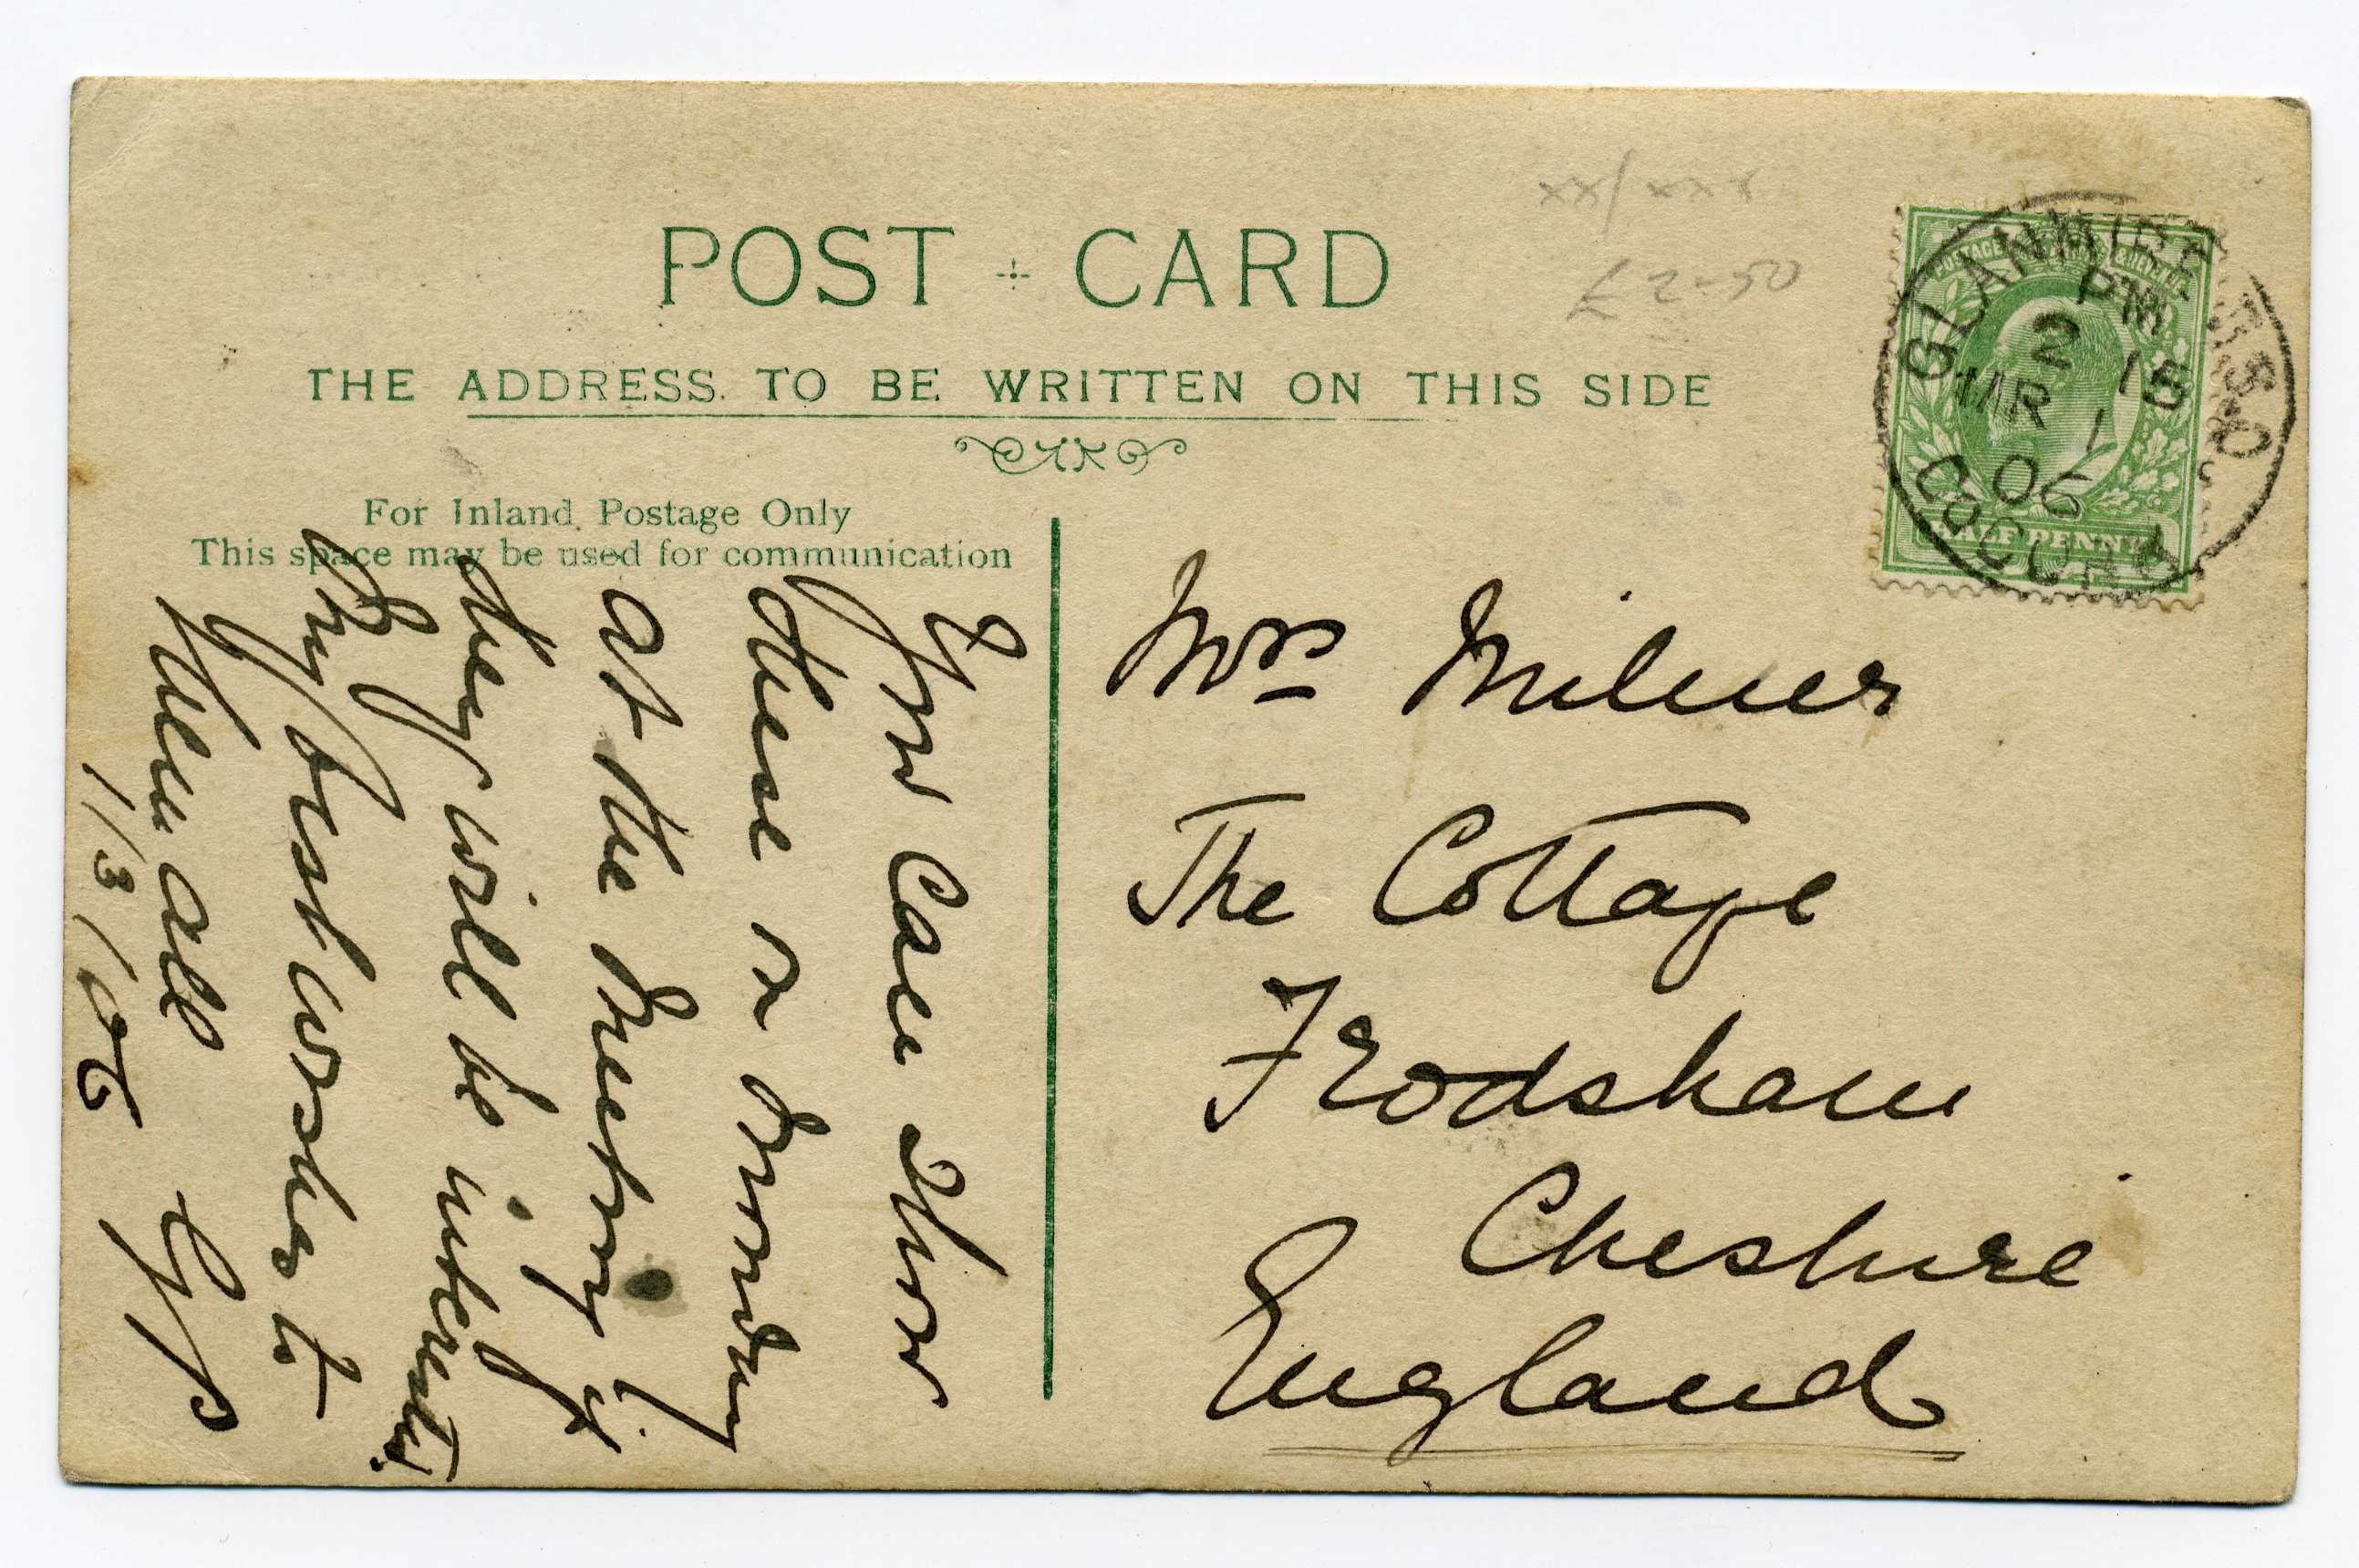 POST + CARD
THE ADDRESS TO BE WRITTEN ON THIS SIDE
For Inland Postage Only
This space may be used for communication
xx/xxx
£2-50
GLANMIRE S.O
PM
2 15
MR 1
06
CO. CORK
POSTAGE & REVENUE
HALFPENNY
Mrs Milner
The Cottage
Frodsham
Cheshire
England
You can show
these on Sunday
at the Meeting if
they will be interested.
My best wishes to
them all
1/3/06